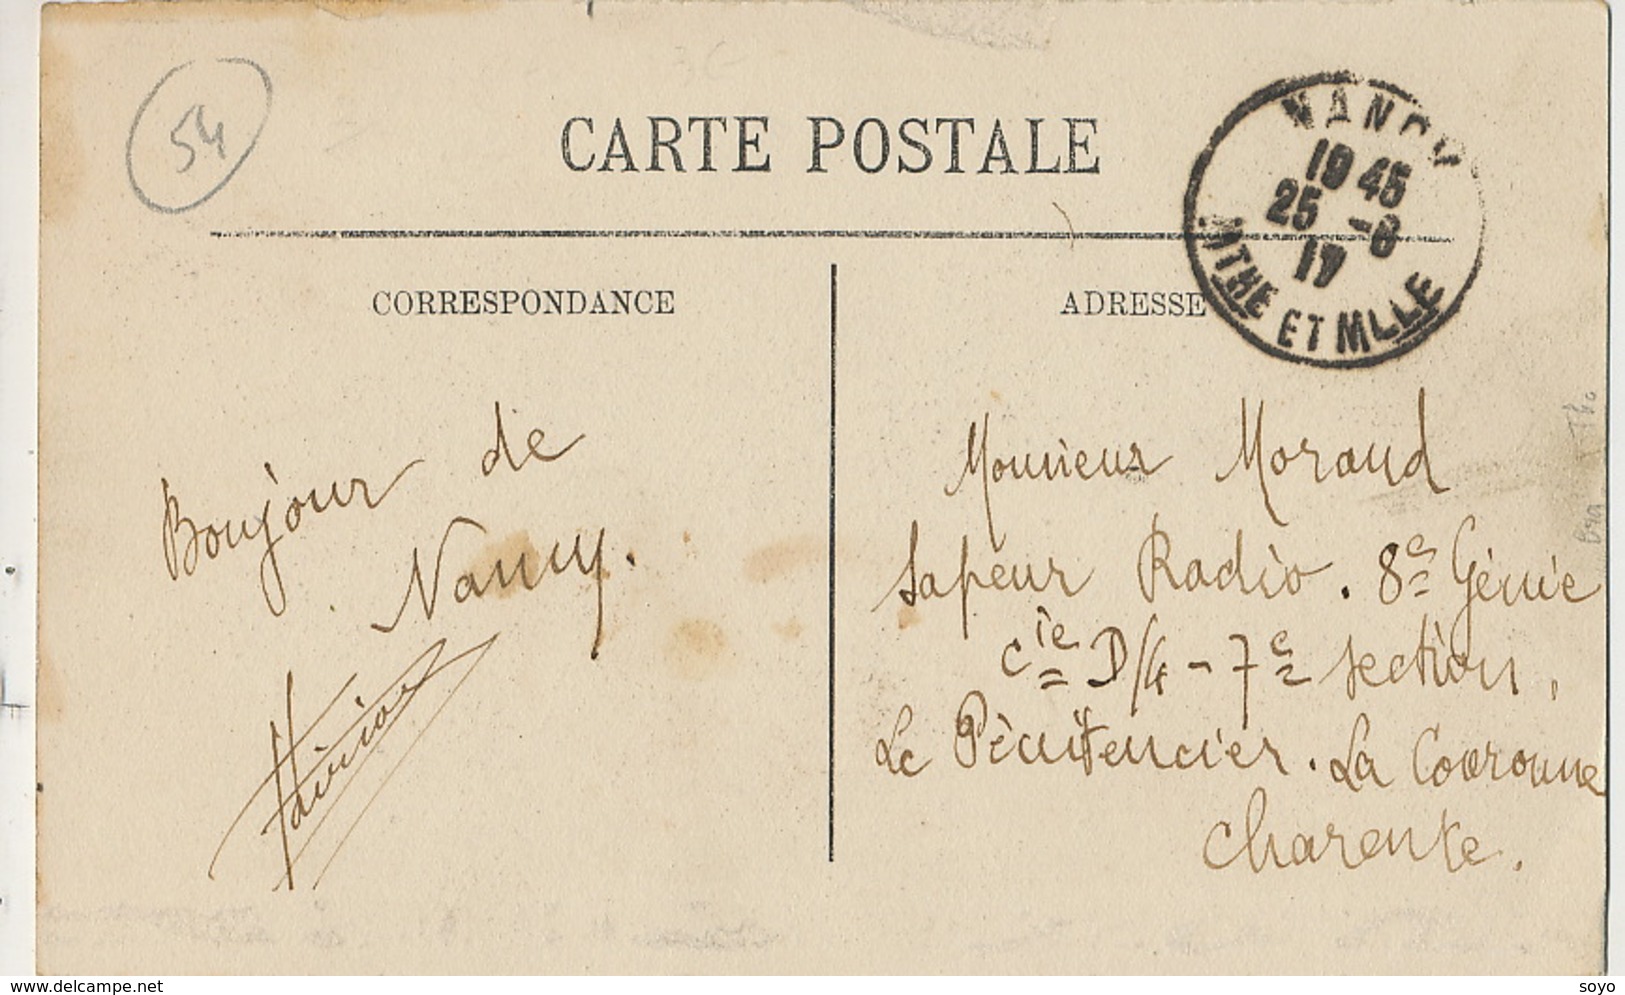 54
CARTE POSTALE
NANCY
19 45
25 -8
17
MTHE ET MLLE
CORRESPONDANCE
ADRESSE
Bonjour de
Nancy.
Monsieur Moraud
Sapeur Radio. 8e Génie
Cie D/4 - 7e section,
Le Pénitencier. La Couronne
Charente.
www.delcampe.net
soyo